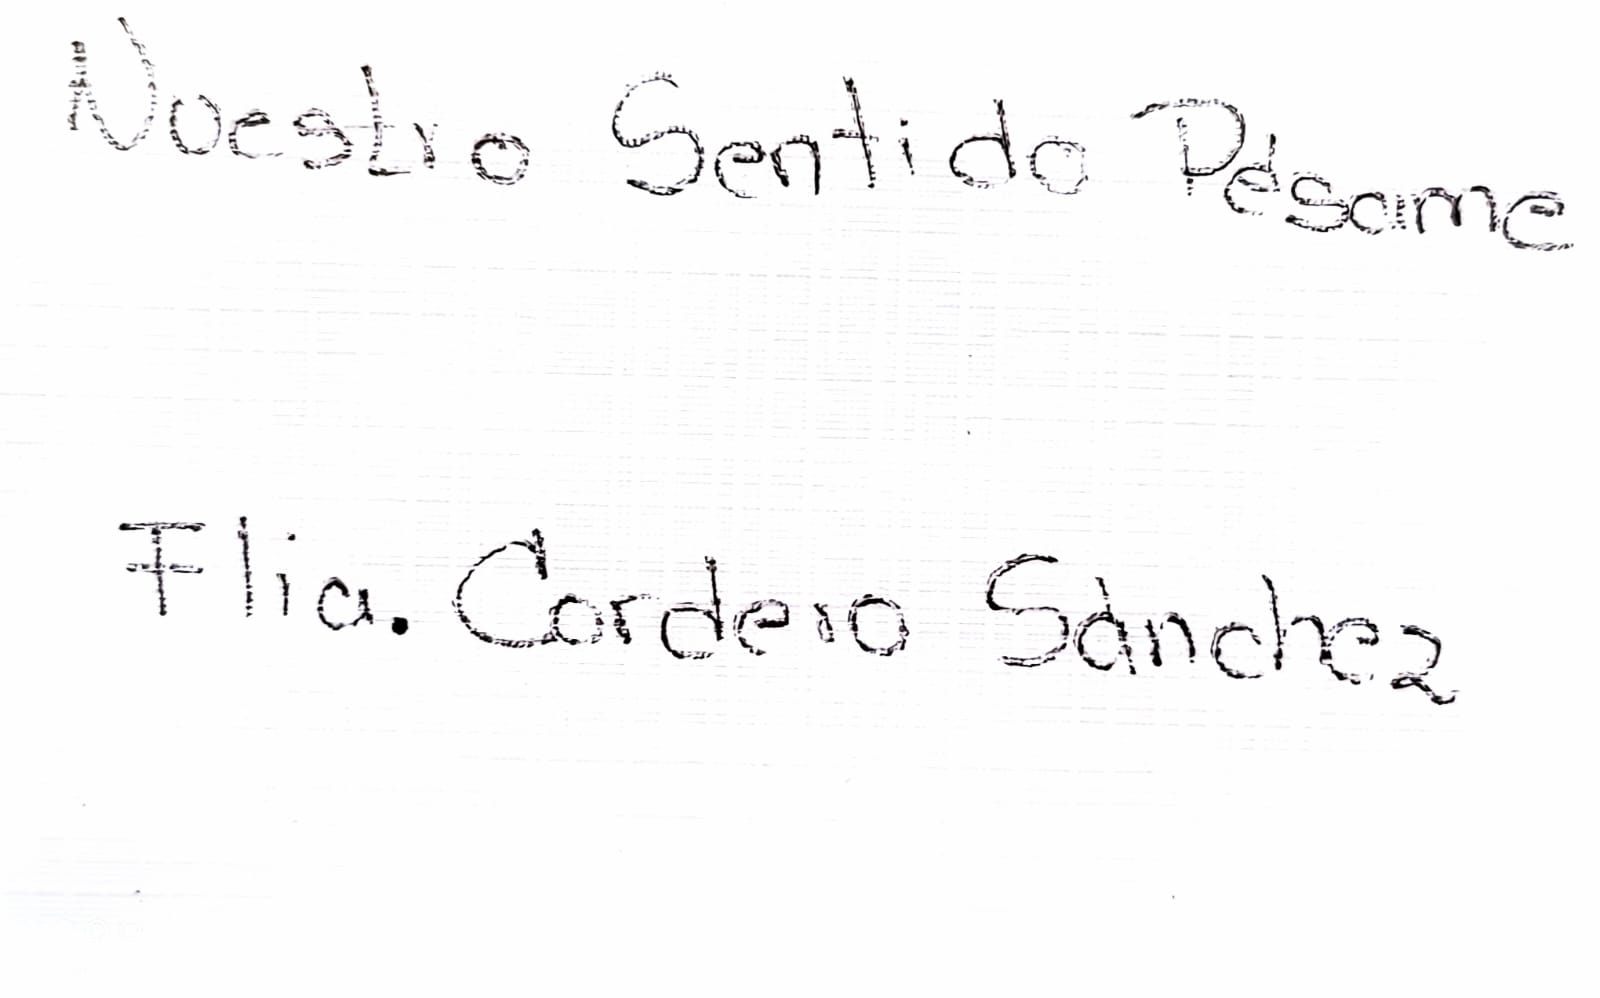 Nuestro Sentido Pésame
Flia. Cordero Sánchez